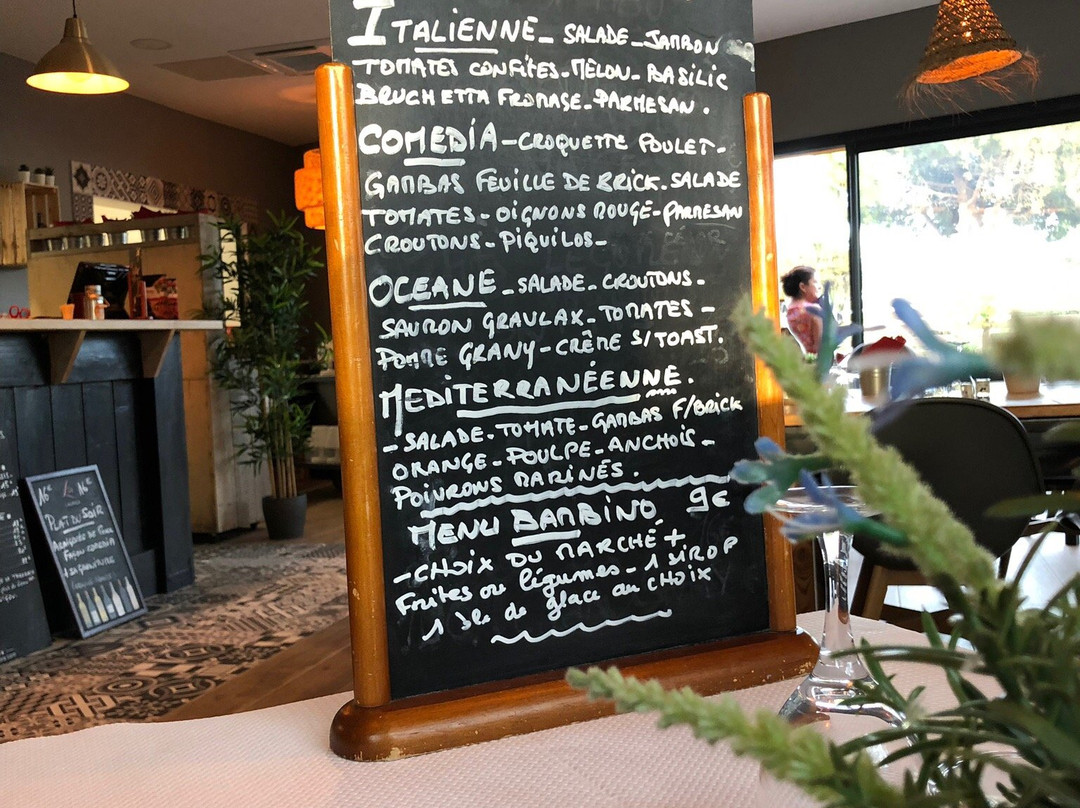 ITALIENNE_ SALADE_JAMBON
TOMATES CONFITES-MELON-BASILIC
BRUCHETTA FROMAGE-PARMESAN.
COMEDIA-CROQUETTE POULET-
GAMBAS FEUILLE DE BRICK.SALADE
TOMATES-OIGNONS ROUGE-PARMESAN
CROUTONS-PIQUILOS-
OCEANE_SALADE_CROUTONS-
SAUMON GRAVLAX-TOMATES-
POMME GRANY-CRÊME S/TOAST.
MEDITERRANÉENNE.
-SALADE-TOMATE-GAMBAS F/BRICK
ORANGE-POULPE-ANCHOIS-
POIVRONS MARINÉS.
MENU BAMBINO 9€
-CHOIX DU MARCHÉ+
Frites ou légumes-1 SIROP
1 de glace au CHOIX
16€ 16€
PLAT DU SOIR
FAÇON COMEDIA